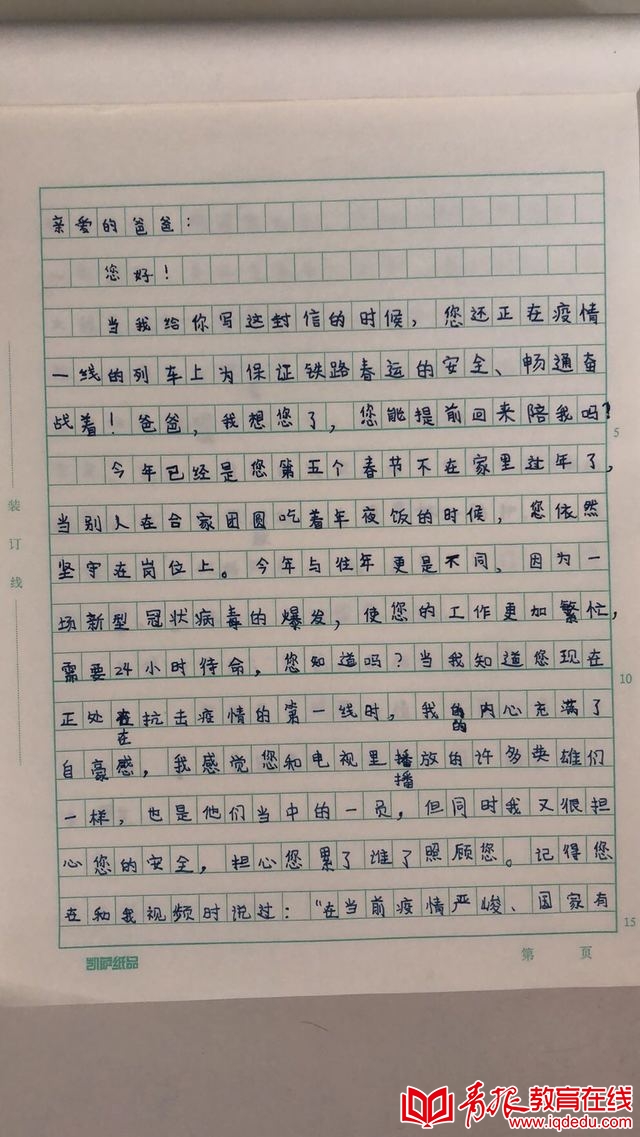 亲爱的爸爸：
您好！
当我给你写这封信的时候，您还正在疫情
一线的列车上为保证铁路春运的安全、畅通奋
战着！爸爸，我想您了，您能提前回来陪我吗？
5
今年已经是您第五个春节不在家里过年了，
当别人在合家团圆吃着年夜饭的时候，您依然
坚守在岗位上。今年与往年更是不同，因为一
场新型冠状病毒的爆发，使您的工作更加繁忙，
需要24小时待命，您知道吗？当我知道您现在
10
正处在抗击疫情的第一线时，我的内心充满了
在
的
自豪感，我感觉您和电视里播放的许多英雄们
播
一样，也是他们当中的一员，但同时我又很担
心您的安全，担心您累了谁了照顾您。记得您
在和我视频时说过：“在当前疫情严峻、国家有
15
装订线
凯萨纸品
第 页
青报教育在线
www.iqdedu.com